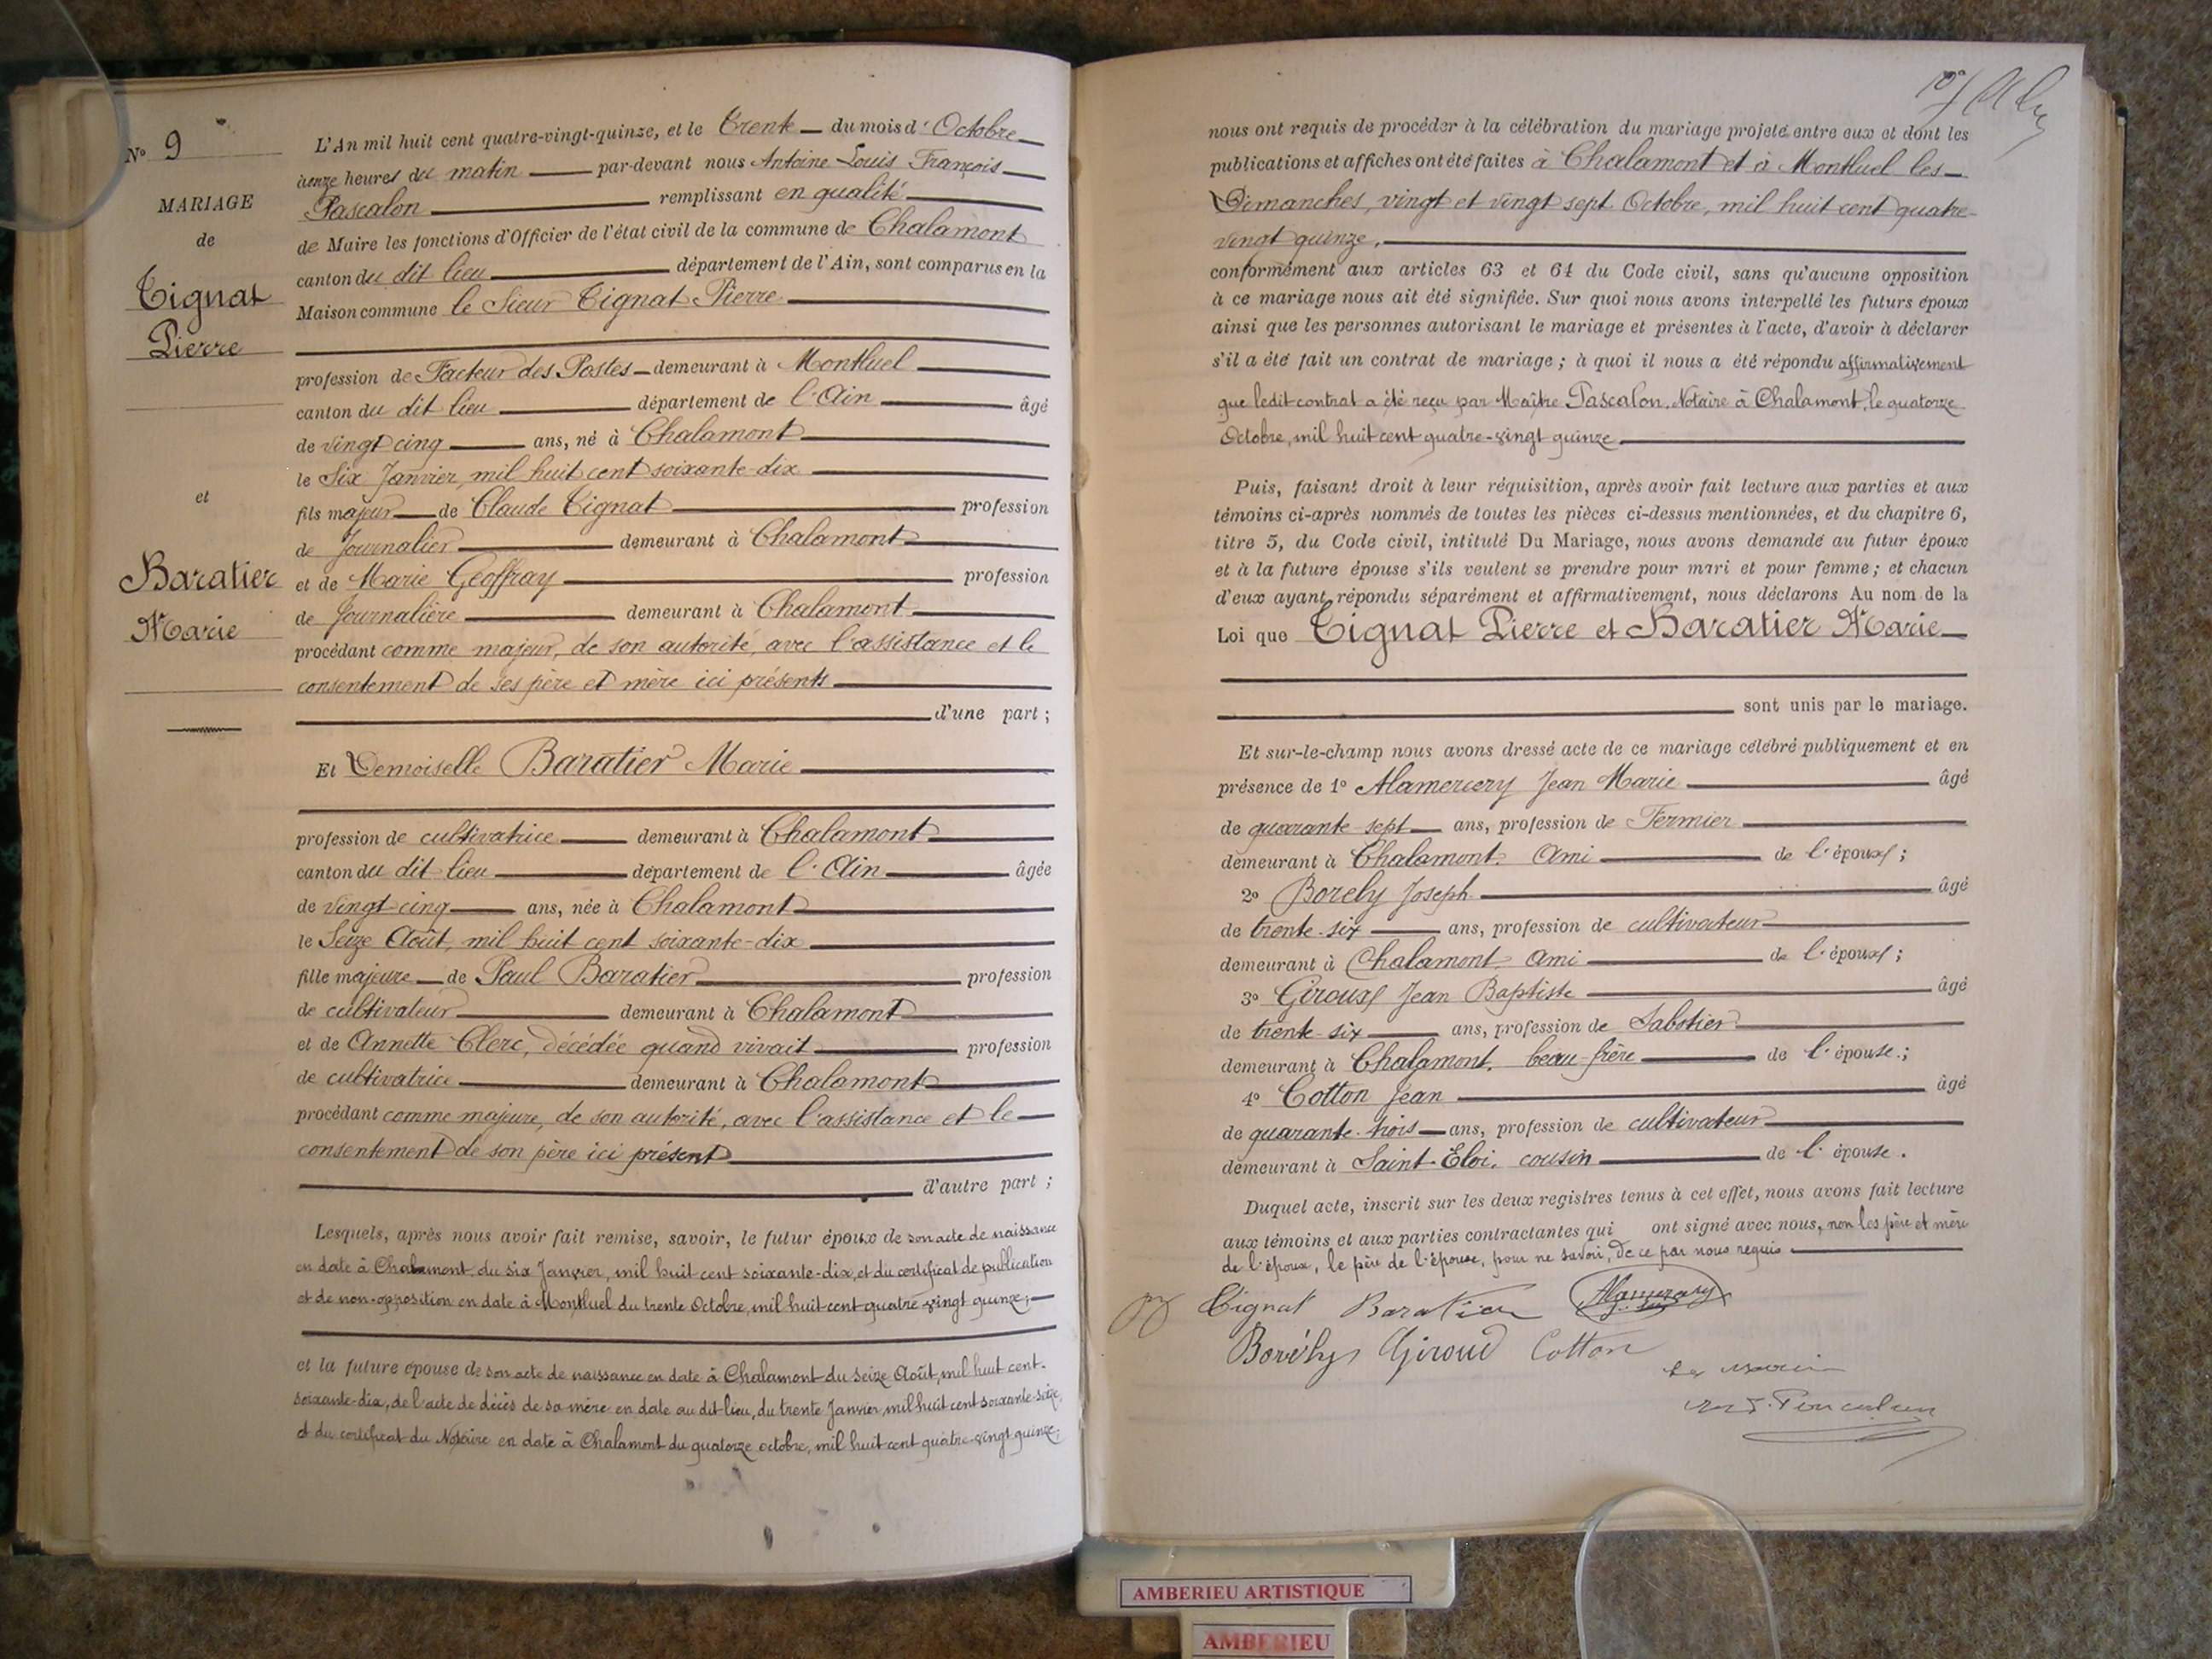 N° 9
MARIAGE
de
Tignat
Pierre
et
Baratier
Marie
L'An mil huit cent quatre-vingt-quinze, et le trente du mois d'Octobre
à onze heures du matin par-devant nous Antoine Louis François
Pascalon remplissant en qualité
de Maire les fonctions d'Officier de l'état civil de la commune de Chalamont
canton du dit lieu département de l'Ain, sont comparus en la
Maison commune le Sieur Tignat Pierre
profession de Facteur des Postes demeurant à Montluel
canton du dit lieu département de l'Ain âgé
de vingt cinq ans, né à Chalamont
le Six Janvier, mil huit cent soixante-dix
fils majeur de Claude Tignat profession
de Journalier demeurant à Chalamont
et de Marie Geoffray profession
de Journalière demeurant à Chalamont
procédant comme majeur, de son autorité, avec l'assistance et le
consentement de ses père et mère ici présents
d'une part ;
Et Demoiselle Baratier Marie
profession de cultivatrice demeurant à Chalamont
canton du dit lieu département de l'Ain âgée
de vingt-cinq ans, née à Chalamont
le Seize Août, mil huit cent soixante-dix
fille majeure de Paul Baratier profession
de cultivateur demeurant à Chalamont
et de Annette Clerc, décédée quand vivait profession
de cultivatrice demeurant à Chalamont
procédant comme majeure, de son autorité, avec l'assistance et le
consentement de son père ici présent
d'autre part ;
Lesquels, après nous avoir fait remise, savoir, le futur époux de son acte de naissance
en date à Chalamont du six Janvier, mil huit cent soixante-dix, et du certificat de publication
et de non-opposition en date à Montluel du trente Octobre, mil huit cent quatre-vingt quinze ;
et la future épouse de son acte de naissance en date à Chalamont du Seize Août, mil huit cent-
soixante-dix, de l'acte de décès de sa mère en date au dit-lieu, du trente Janvier, mil huit cent soixante-seize,
et du certificat du Notaire en date à Chalamont du quatorze octobre, mil huit cent quatre-vingt quinze ;
nous ont requis de procéder à la célébration du mariage projeté entre eux et dont les
publications et affiches ont été faites à Chalamont et à Montluel les
Dimanches, vingt et vingt sept Octobre, mil huit cent quatre-
vingt quinze,
conformément aux articles 63 et 64 du Code civil, sans qu'aucune opposition
à ce mariage nous ait été signifiée. Sur quoi nous avons interpellé les futurs époux
ainsi que les personnes autorisant le mariage et présentes à l'acte, d'avoir à déclarer
s'il a été fait un contrat de mariage ; à quoi il nous a été répondu affirmativement
que ledit contrat a été reçu par Maître Pascalon, Notaire à Chalamont, le quatorze
Octobre, mil huit cent quatre-vingt quinze
Puis, faisant droit à leur réquisition, après avoir fait lecture aux parties et aux
témoins ci-après nommés de toutes les pièces ci-dessus mentionnées, et du chapitre 6,
titre 5, du Code civil, intitulé Du Mariage, nous avons demandé au futur époux
et à la future épouse s'ils veulent se prendre pour mari et pour femme ; et chacun
d'eux ayant répondu séparément et affirmativement, nous déclarons Au nom de la
Loi que Tignat Pierre et Baratier Marie
sont unis par le mariage.
Et sur-le-champ nous avons dressé acte de ce mariage célébré publiquement et en
présence de 1° Alamercery Jean Marie âgé
de quarante-sept ans, profession de Fermier
demeurant à Chalamont. Ami de l'époux ;
2° Borely Joseph âgé
de trente-six ans, profession de cultivateur
demeurant à Chalamont. Ami de l'époux ;
3° Giroux Jean Baptiste âgé
de trente-six ans, profession de Sabotier
demeurant à Chalamont. beau-frère de l'épouse ;
4° Cotton Jean âgé
de quarante-trois ans, profession de cultivateur
demeurant à Saint-Eloi. cousin de l'épouse.
Duquel acte, inscrit sur les deux registres tenus à cet effet, nous avons fait lecture
aux témoins et aux parties contractantes qui ont signé avec nous, non les père et mère
de l'époux, le père de l'épouse, pour ne savoir, de ce par nous requis
Tignat Baratier Alamercery
Borély Giroud Cotton
Le Maire
AMBERIEU ARTISTIQUE
AMBERIEU